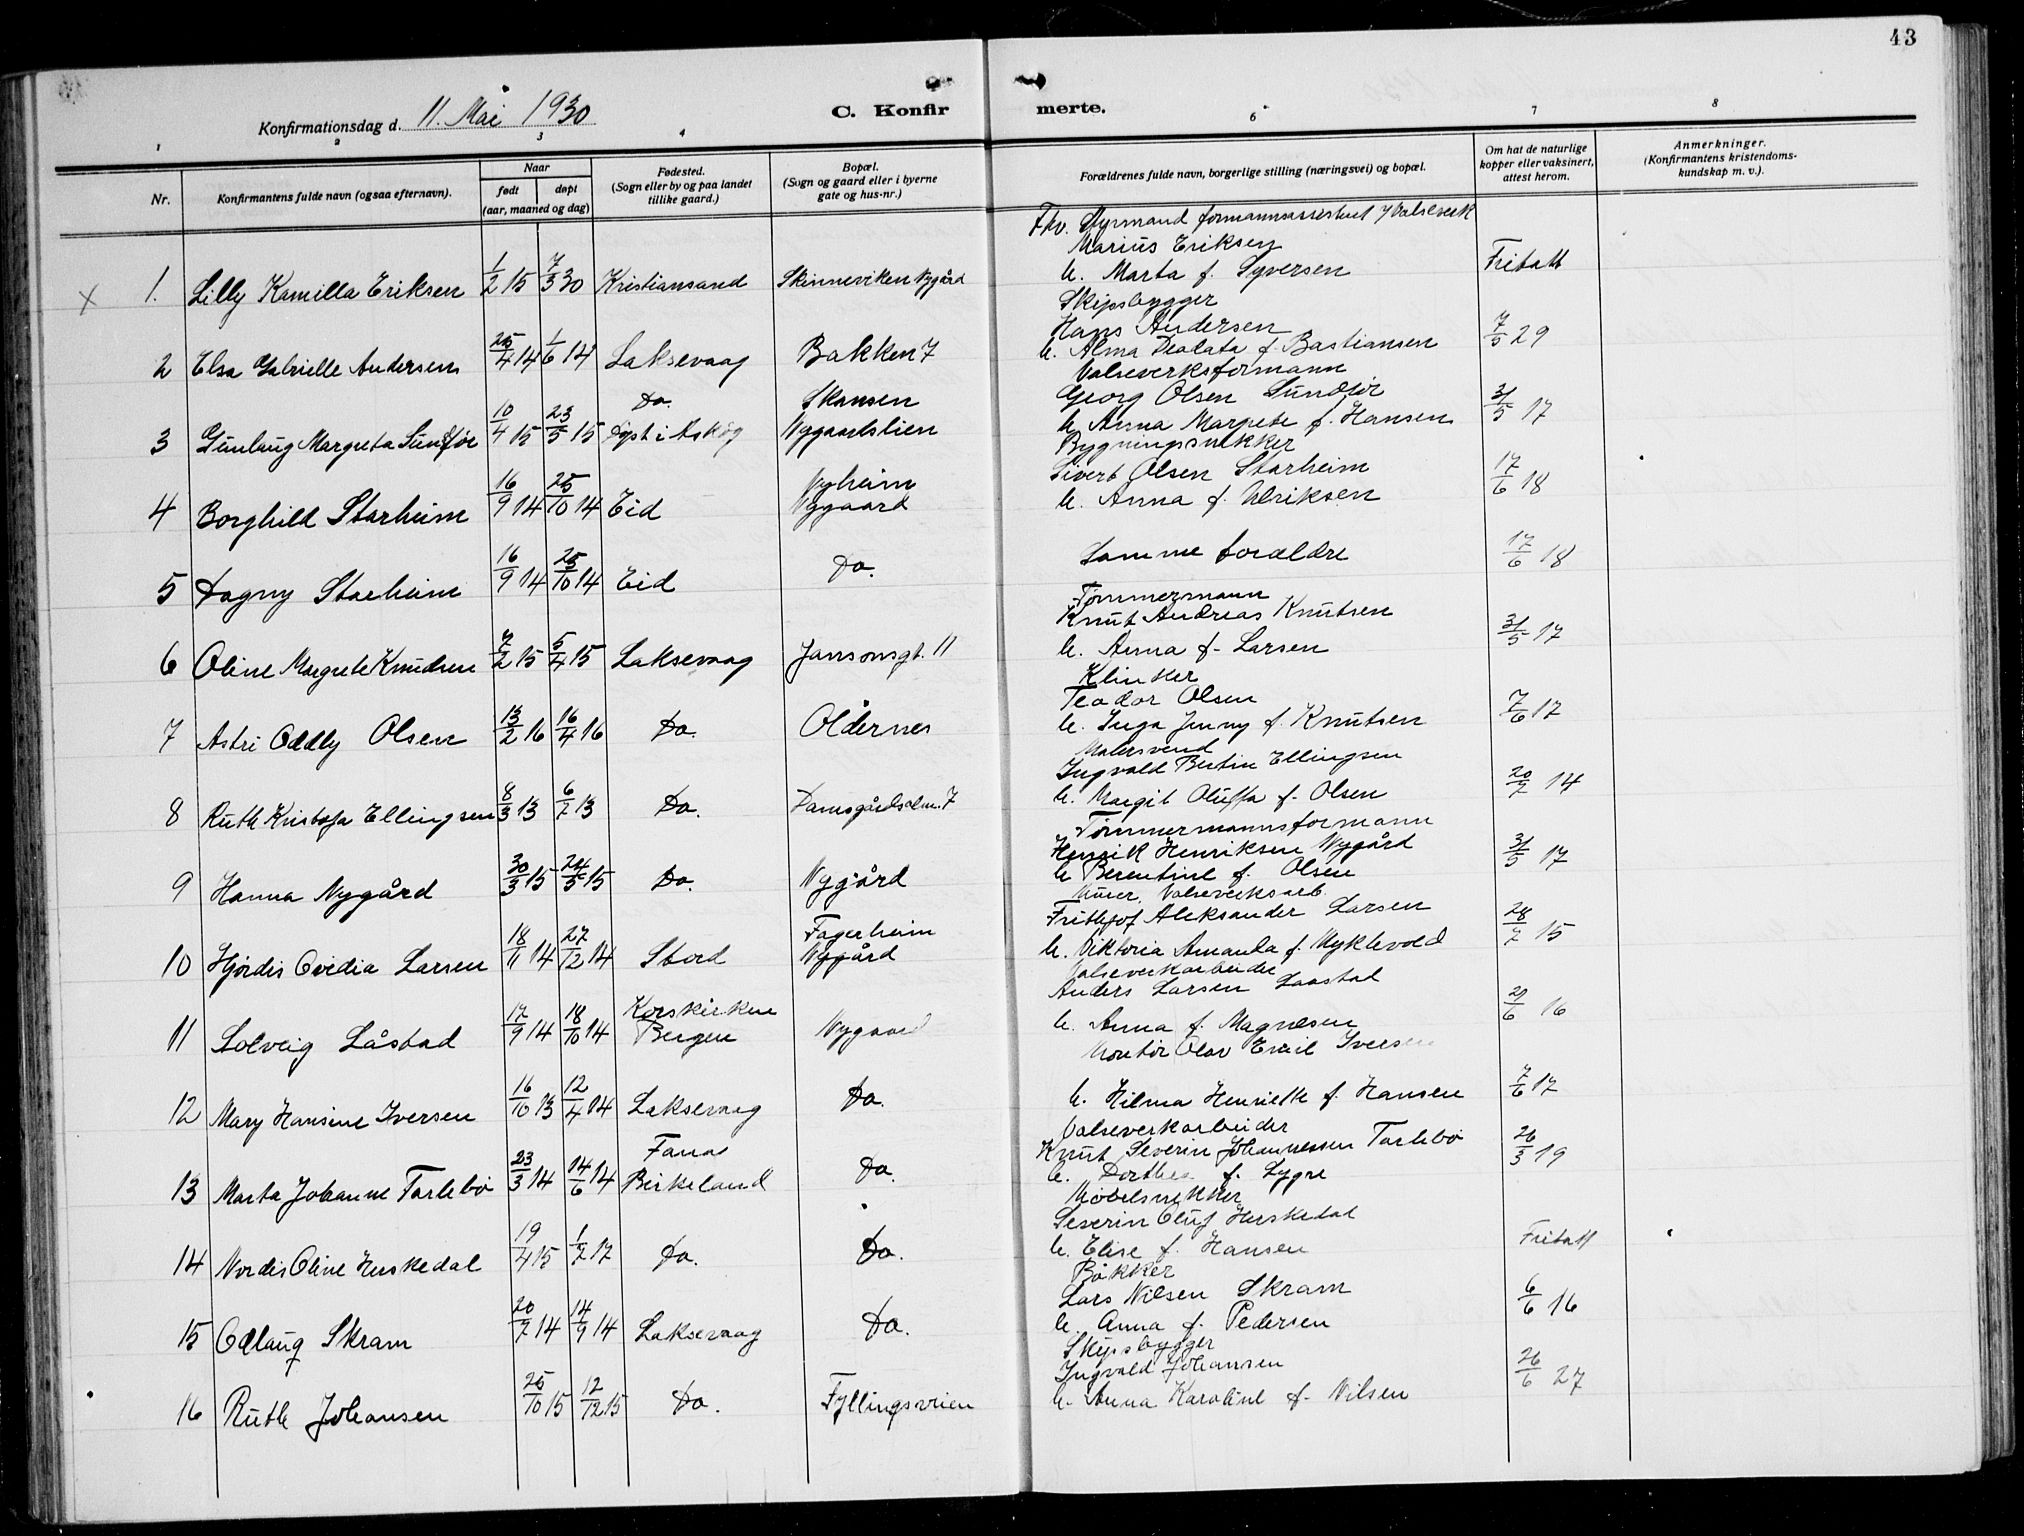 43
Konfirmationsdag d. 11. Mai 1930
C. Konfir merte.
1 2 3 4 6 7 8
Nr.
Konfirmantens fulde navn (ogsaa efternavn).
Naar
født døpt
(aar, maaned og dag)
Fødested.
(Sogn eller by og paa landet
tillike gaard.)
Bopæl.
(Sogn og gaard eller i byerne
gate og hus-nr.)
Forældrenes fulde navn, borgerlige stilling (næringsvei) og bopæl.
Om hat de naturlige
kopper eller vaksinert,
attest herom.
Anmerkninger.
(Konfirmantens kristendoms-
kundskap m. v.).
Fhv. Styrmand formannsassistent v Valseverk
Marius Eriksen
x 1. Lilly Kamilla Eriksen 1/2 15 7/3 30 Kristiansand Skinneviken Nygård h. Marta f. Syversen Fritatt
Skipsbygger
Hans Andersen
2 Elsa Gabrielle Andersen 25/4 14 1/6 14 Laksevaag Bakken 7 h. Alma f. Bastiansen 7/5 29
Valseverksformann
Do. Skansen Georg Olsen Sundför
3 Gunlaug Margreta Sundför 10/4 15 23/5 15 Døpt i Askøy Nygaardslien h. Anna Margrete f. Hansen 31/5 17
Bygningsnekker
Nyheim Sivert Olsen Starheim
4 Borghild Starheim 16/9 14 25/10 14 Eid Nygaard h. Anna f. Ulriksen 17/6 18
5 Dagny Starheim 16/9 14 25/10 14 Eid Do. Samme forældre 17/6 18
Tømmermann
Knut Andreas Knutsen
6 Oline Margrete Knudsen 7/2 15 5/4 15 Laksevaag Jansonsgt. 11 h. Anna f. Larsen 31/5 17
Klinker
Teodor Olsen
7 Astri Oddly Olsen 13/2 16 16/4 16 Do. Oldernes h. Inga Jenny f. Knutsen 7/6 17
Malersvend
Ingvald Bertin Ellingsen
8 Ruth Kristofa Ellingsen 8/3 13 6/7 13 Do. Damsgårdsalm. 7 h. Margit Oluffa f. Olsen 20/7 14
Tømmermannsformann
Henrik Henriksen Nygård
9 Hanna Nygård 30/3 15 24/5 15 Do. Nygård h Berentine f. Olsen 31/5 17
Murer, Valseverksarb.
Fagerheim Frithjof Aleksander Larsen
10 Hjördis Ovidia Larsen 18/11 14 27/12 14 Stord Nygård h. Viktoria Amanda f. Myklevold 28/7 15
Valseverkarbeider
Korskirken Anders Larsen Laastad
11 Solveig Låstad 17/9 14 18/10 14 Bergen Nygaard h. Anna f. Magnesen 21/6 16
Montör Olav Emil Iversen
12 Mary Hansine Iversen 16/10 13 12/4 14 Laksevaag Do. h. Hilma Henriette f. Hansen 7/6 17
Valseverkarbeider
Fana Knut Severin Johannessen Tarlebö
13 Marta Johanne Tarlebö 23/3 14 14/6 14 Birkeland Do. h. Dorthea f. Lygre 26/3 19
Möbelsnekker
Severin Oluf Herskedal
14 Nordis Oline Herskedal 19/4 15 1/7 17 Do. Do. h. Elise f. Hansen Fritatt
Båkker
Lars Nilsen Skram
15 Odlaug Skram 20/7 14 14/9 14 Laksevaag Do. h. Anna f. Pedersen 6/6 16
Skipsbygger
Ingvald Johansen
16 Ruth Johansen 25/10 15 12/12 15 Do. Fyllingsveien h. Anna Karoline f. Nilsen 26/6 27